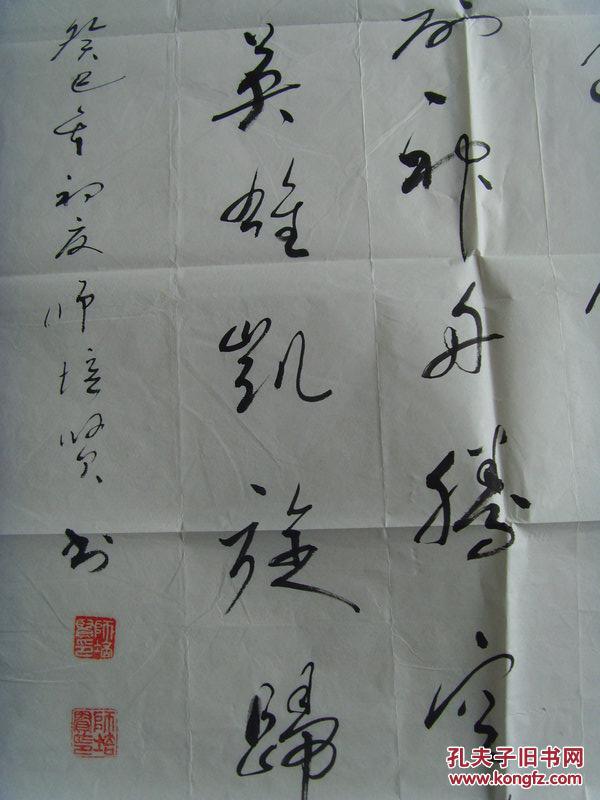 神舟腾空
英雄凯旋归
癸巳年初夏师培贤书
师培贤印
师培贤印
孔夫子旧书网
www.kongfz.com